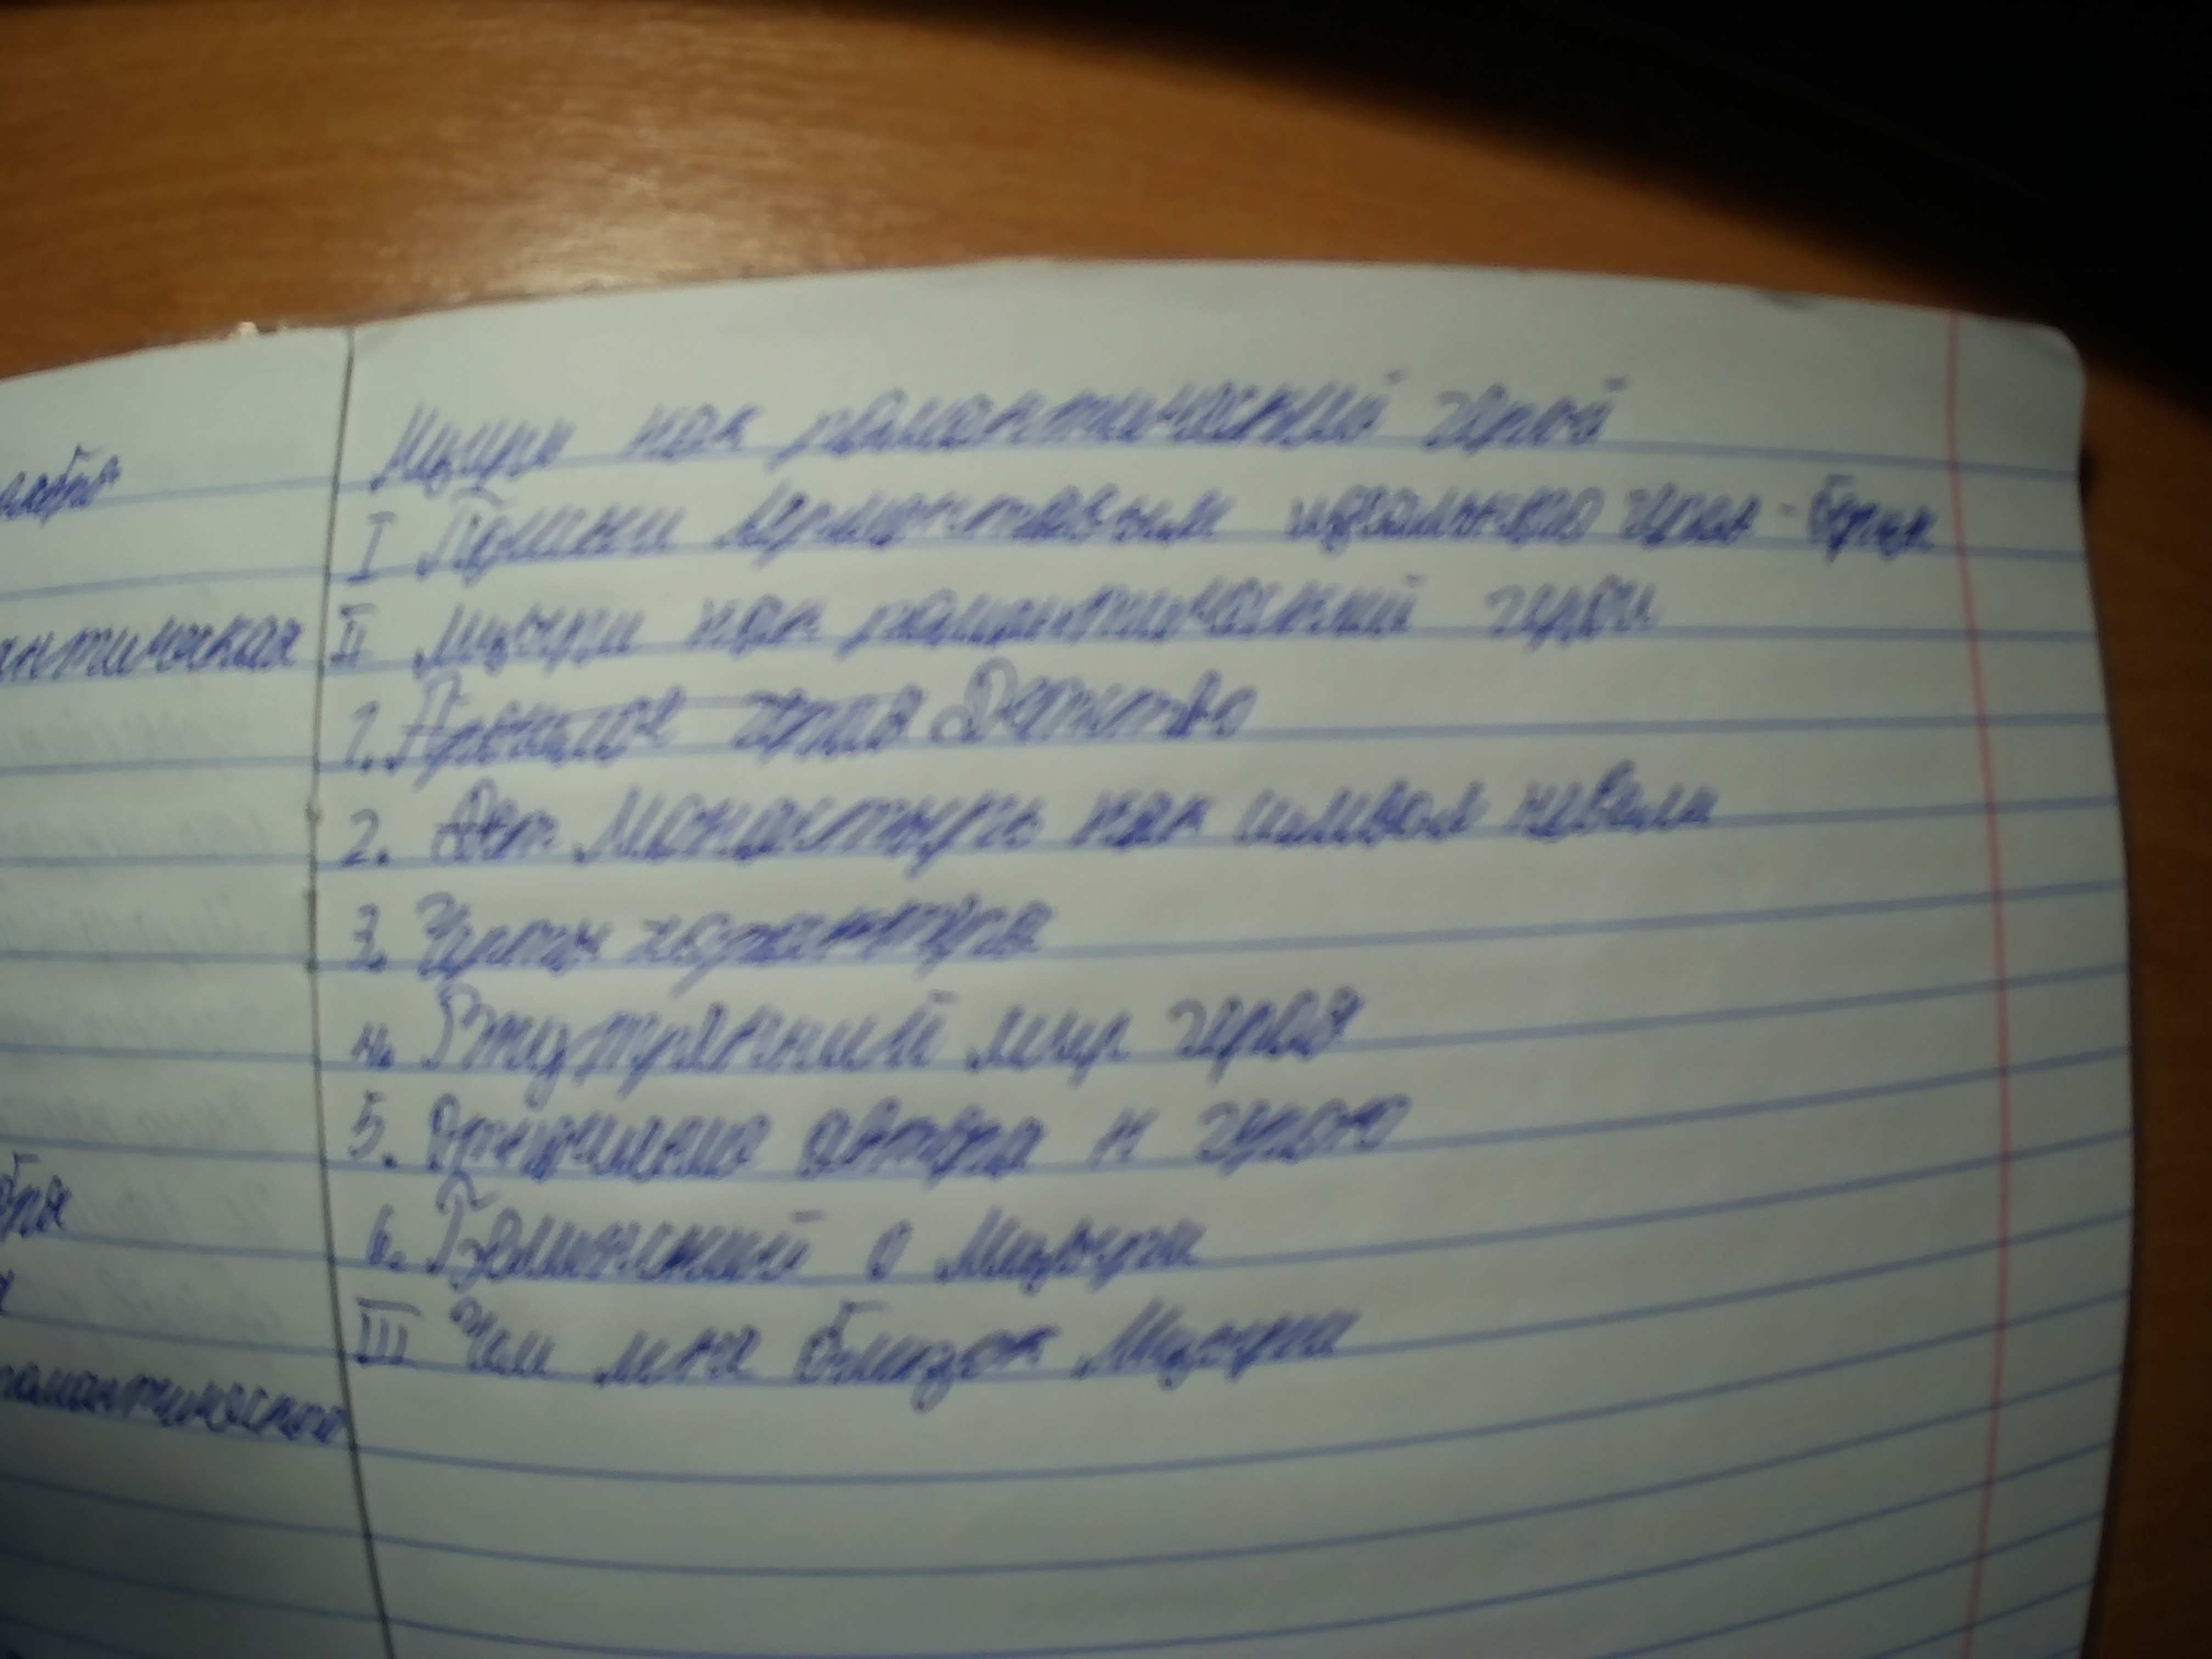 Мцыри как романтический герой
I Поиски Лермонтовым идеального героя - борца
антическая
II Мцыри как романтический герой
1. Прошлое героя Детство
2. Дет Монастырь как символ неволи
3. Черты характера
4. Внутренний мир героя
5. Отношение автора к герою
6. Белинский о Мцыри
III Чем мне близок Мцыри
романтического